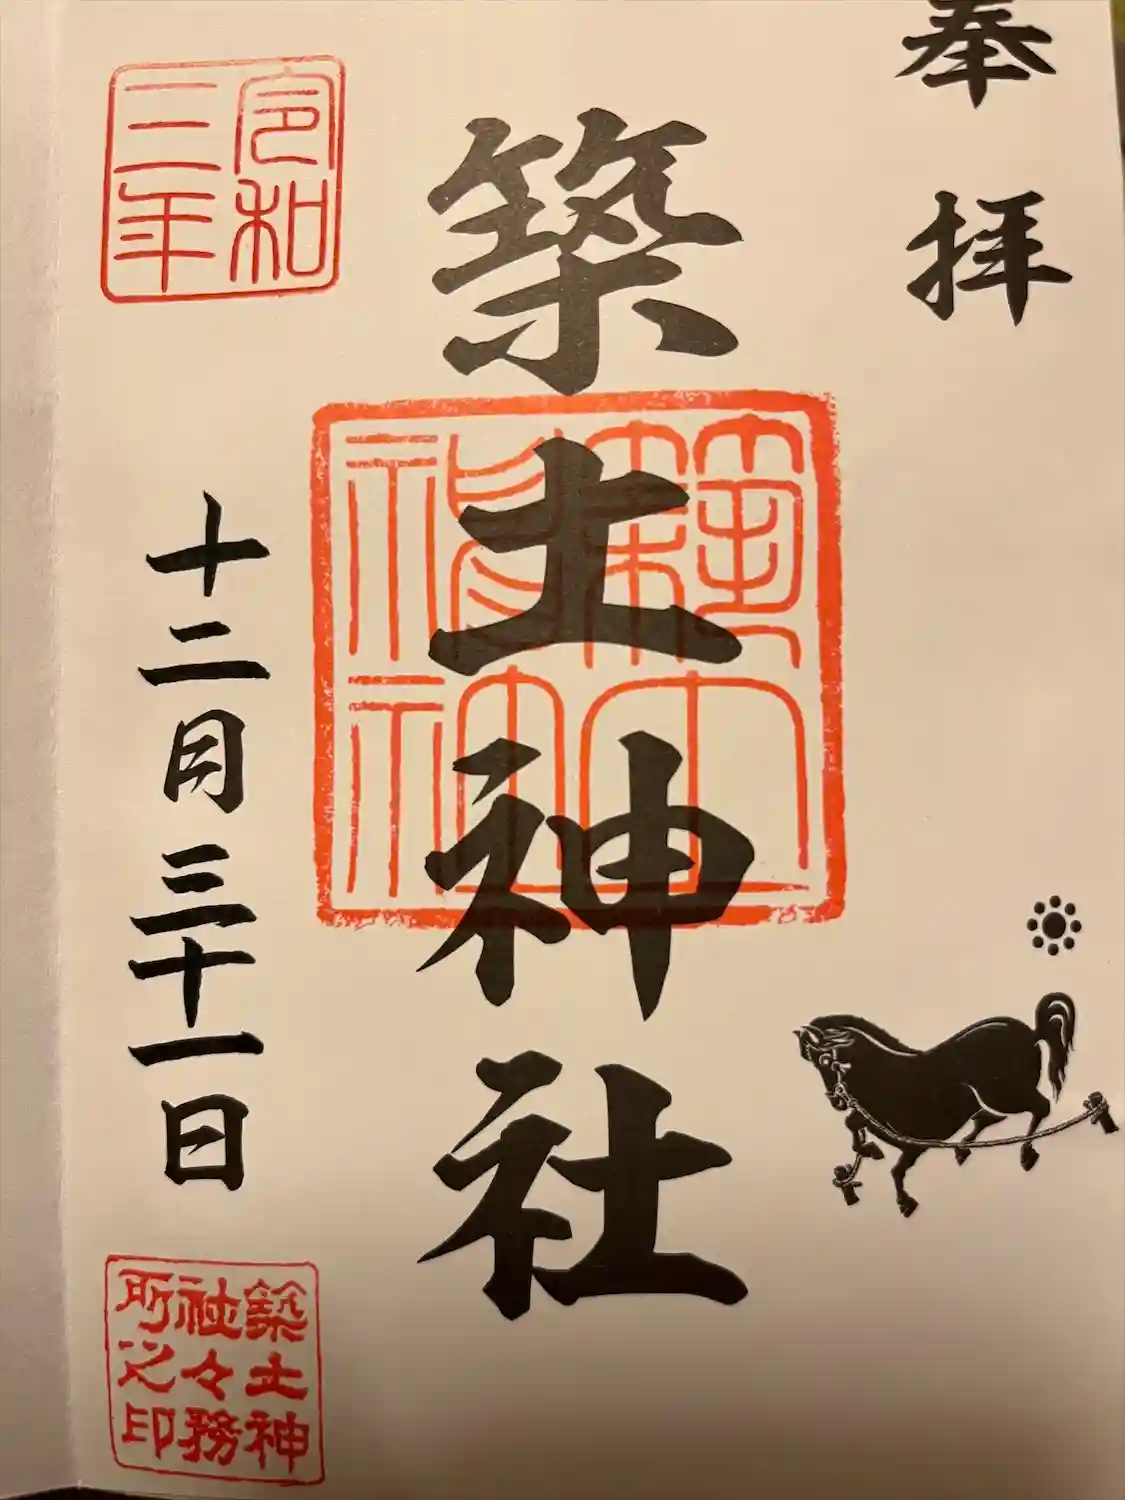 奉拝
築土神社
令和
三年
十二月三十一日
築土神
社々務
所之印